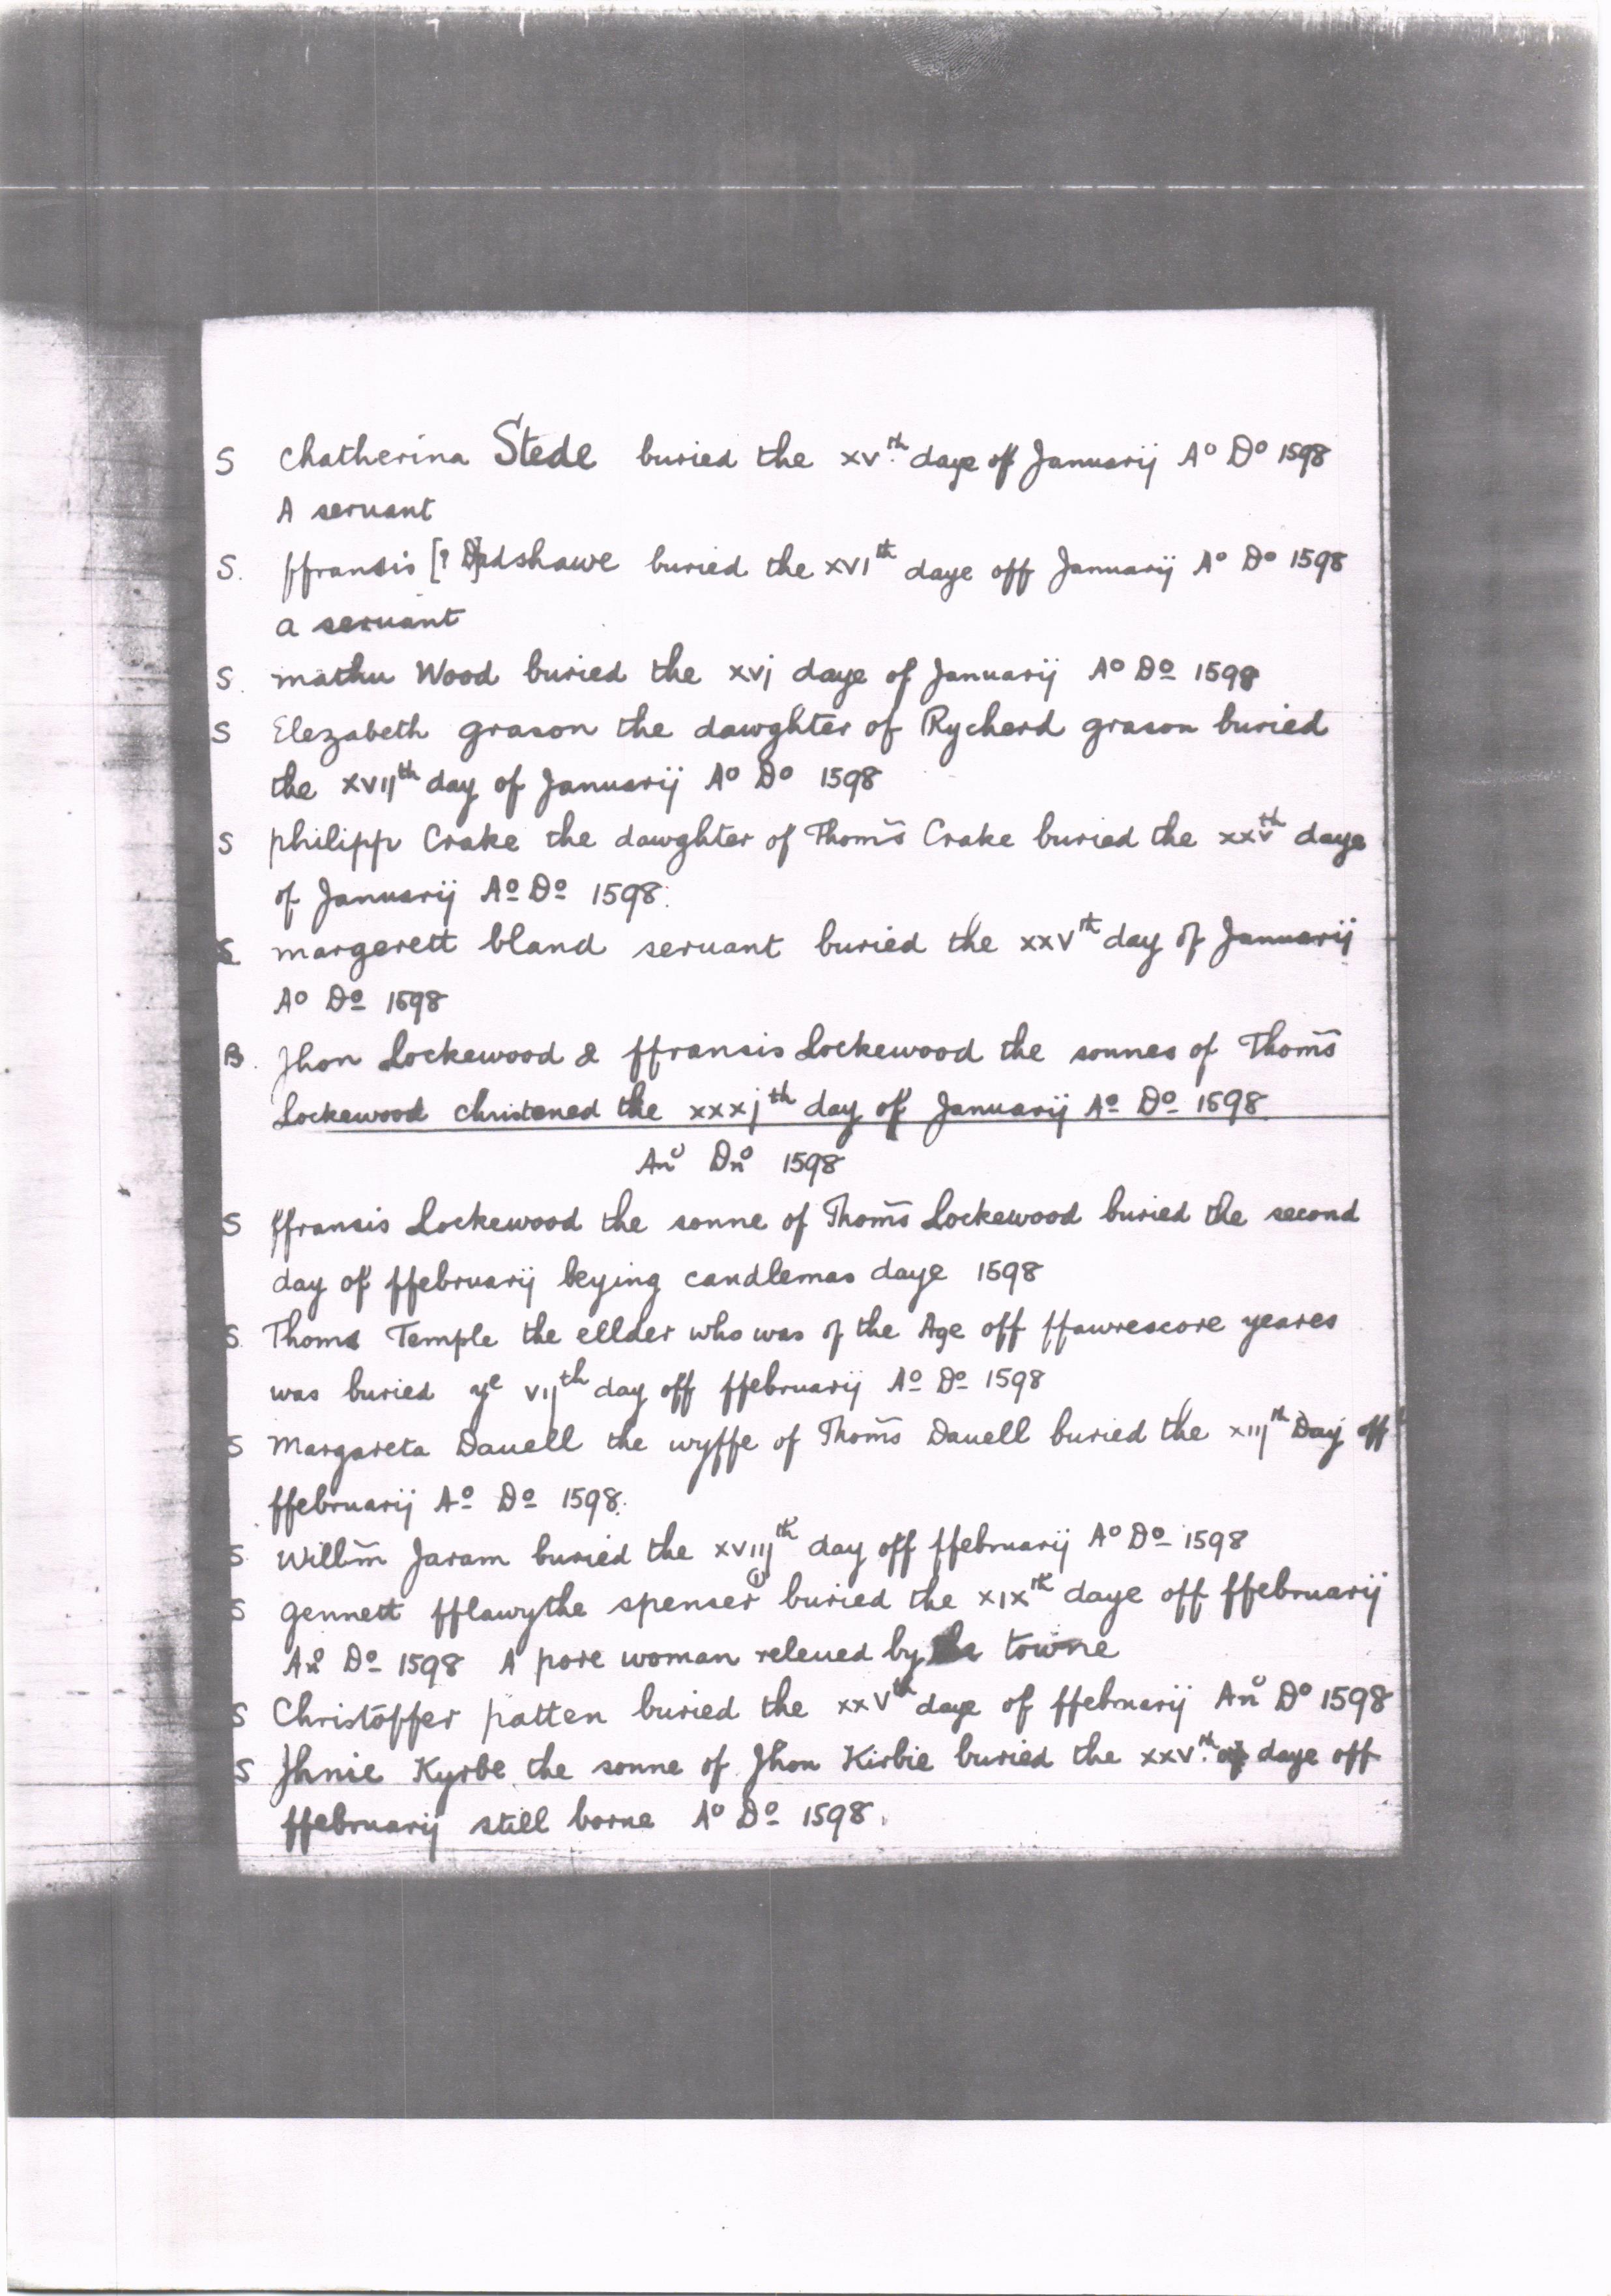 S chatherina Stede buried the xv.th daye of Januarij Ao Do 1598
A servant
S. ffransis [? D]adshawe buried the xvith daye off Januarij Ao Do 1598
a servant
S. mathu Wood buried the xvj daye of Januarij Ao Do 1598
S Elezabeth grason the dawghter of Rycherd grason buried
the xvijth day of Januarij Ao Do 1598
S philipp Crake the dawghter of Thom̄s Crake buried the xxvth daye
of Januarij Ao Do 1598.
S. margerett bland seruant buried the xxvth day of Januarij
Ao Do 1598
B. Jhon Lockewood & ffransis Lockewood the sonnes of Thom̄s
Lockewood christened the xxxjth day of Januarij Ao Do 1598
Ano Dno 1598
S ffransis Lockewood the sonne of Thom̄s Lockewood buried the second
day of ffebruarij beying candlemas daye 1598
S. Thoms Temple the ellder who was of the Age off ffawrescore yeares
was buried ye vijth day off ffebruarij Ao Do 1598
S Margareta Dauell the wyffe of Thom̄s Dauell buried the xiijth Day off
ffebruarij Ao Do 1598.
S. Willm̄ Jaram buried the xviijth day off ffebruarij Ao Do 1598
S gennett fflawythe spenser (1) buried the xixth daye off ffebruarij
Ano Do 1598 A pore woman releued by the towne
S Christoffer patten buried the xxvth daye of ffebruarij Ano Do 1598
S Jhnie Kyrbe the sonne of Jhon Kirbie buried the xxv.th daye off
ffebruarij still borne Ao Do 1598.